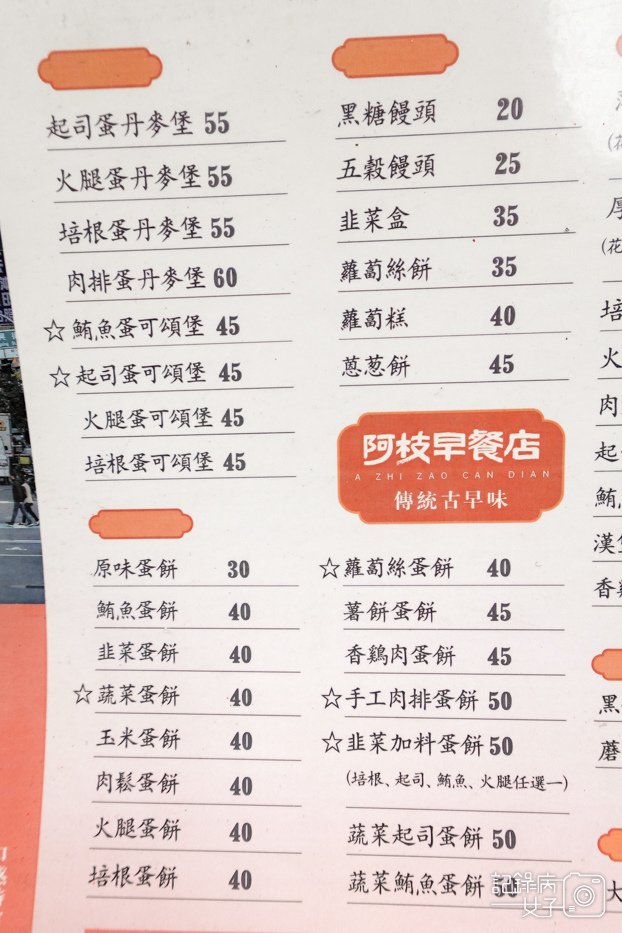 起司蛋丹麥堡 55
火腿蛋丹麥堡 55
培根蛋丹麥堡 55
肉排蛋丹麥堡 60
☆鮪魚蛋可頌堡 45
☆起司蛋可頌堡 45
火腿蛋可頌堡 45
培根蛋可頌堡 45
原味蛋餅 30
鮪魚蛋餅 40
韭菜蛋餅 40
☆蔬菜蛋餅 40
玉米蛋餅 40
肉鬆蛋餅 40
火腿蛋餅 40
培根蛋餅 40
黑糖饅頭 20
五穀饅頭 25
韭菜盒 35
蘿蔔絲餅 35
蘿蔔糕 40
蔥蔥餅 45
阿枝早餐店
A ZHI ZAO CAN DIAN
傳統古早味
☆蘿蔔絲蛋餅 40
薯餅蛋餅 45
香鷄肉蛋餅 45
☆手工肉排蛋餅 50
☆韭菜加料蛋餅 50
(培根、起司、鮪魚、火腿任選一)
蔬菜起司蛋餅 50
蔬菜鮪魚蛋餅 50
(花
厚
(花
培
火
肉
起
鮪
漢堡
香鷄
黑
蘑
大
記錄病
女子